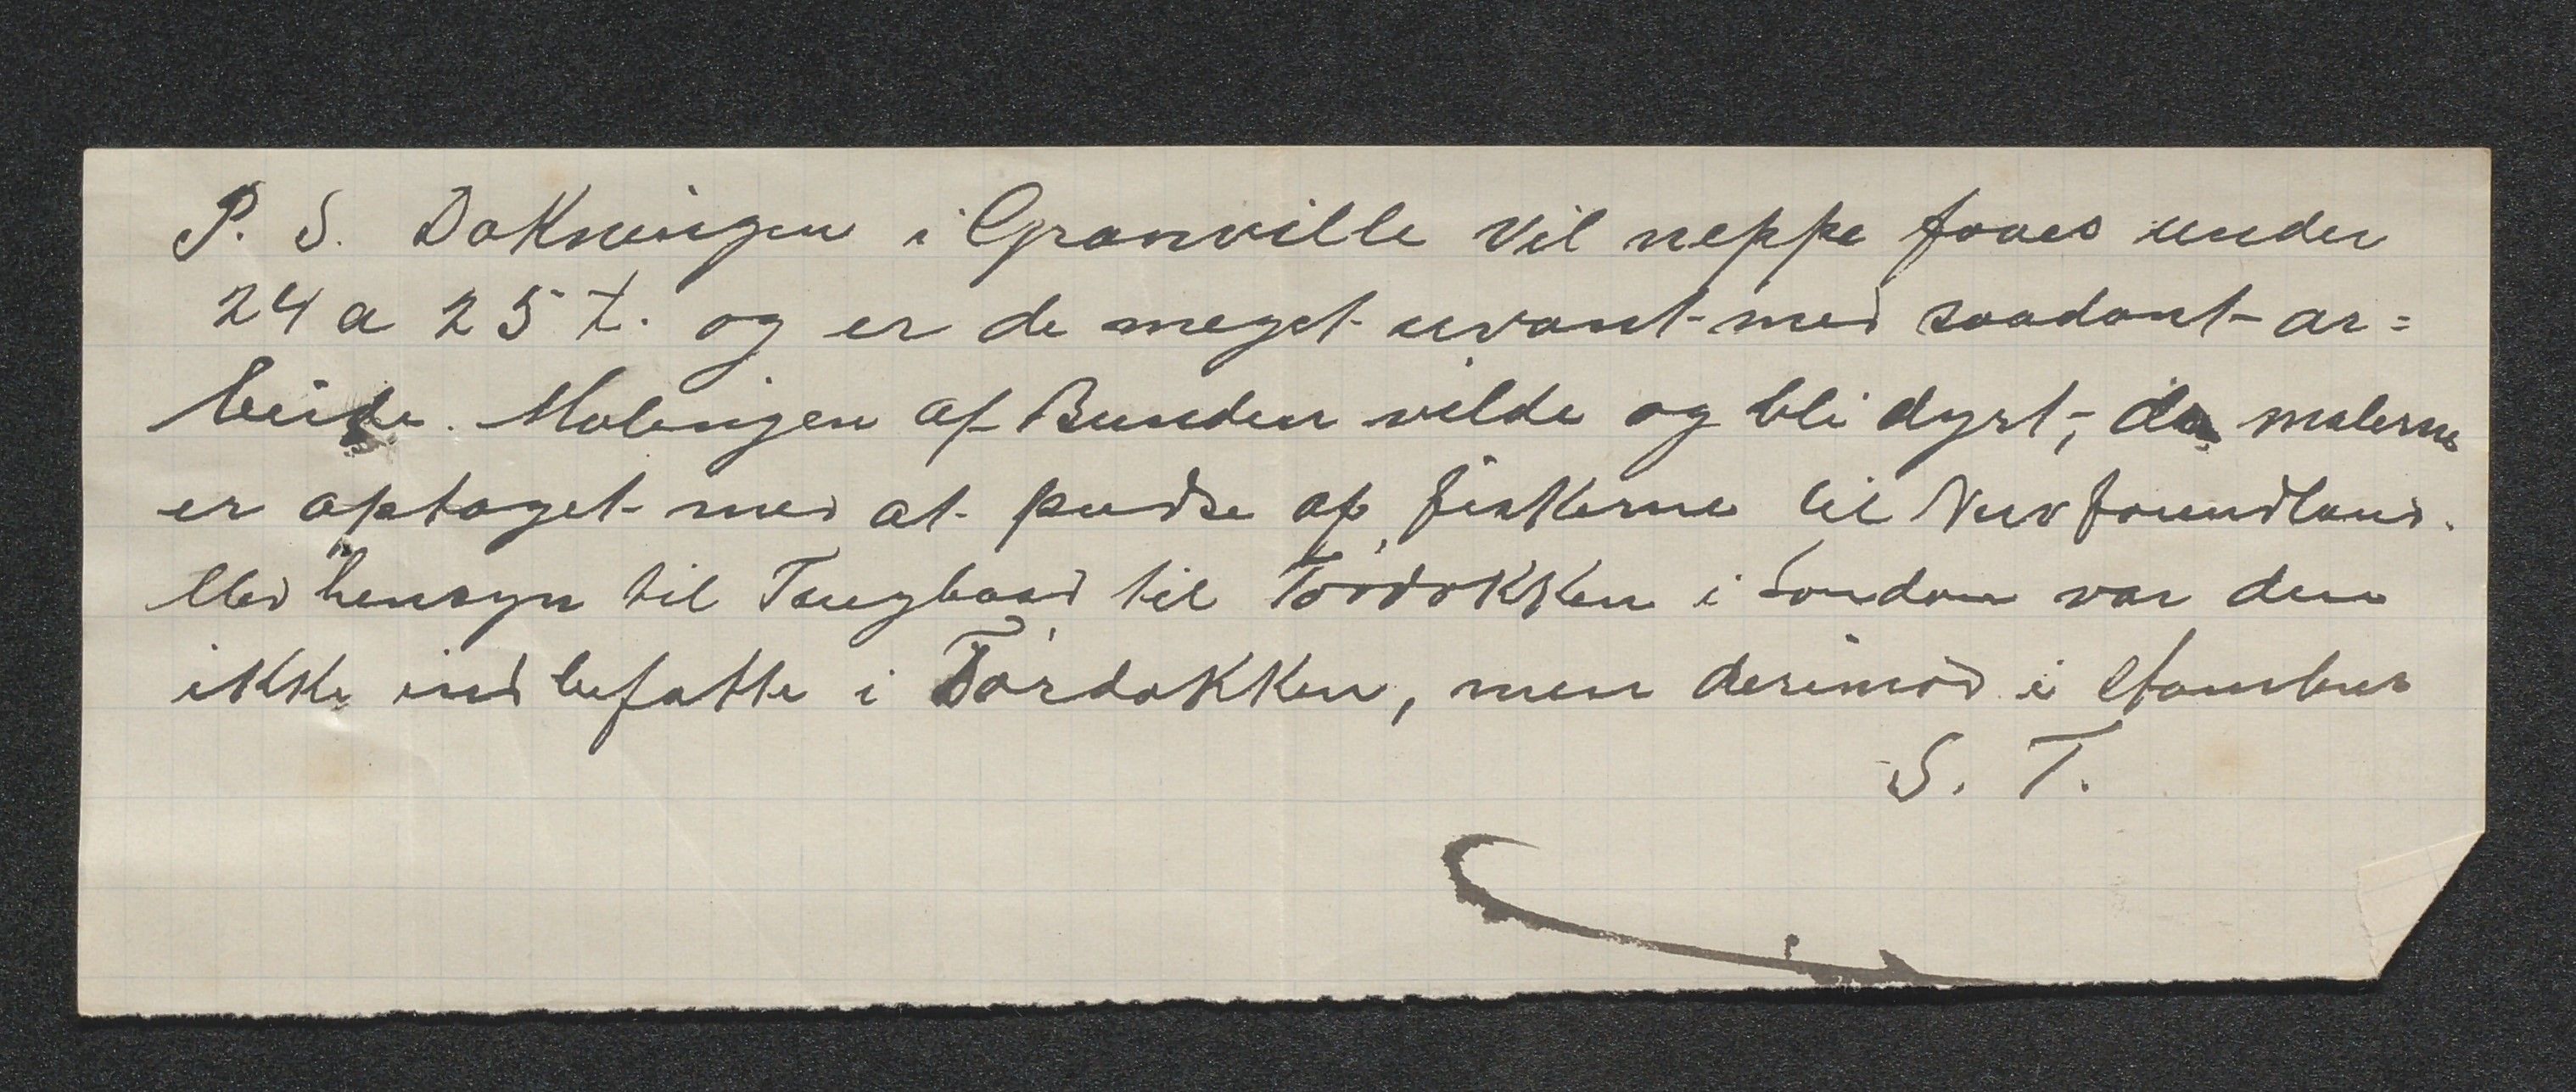 P. S. Dokningen i Granville vil neppe faaes under
24 a 25 £. og er de meget uvant med saadant ar=
beide. Malingen af Bunden vilde og bli dyrt, da malerne
er optaget med at pudse op fiskerne til Newfoundland.
Med hensyn til Taugbaad til Tördokken i London var den
ikke indbefatte i Tördokken, men derimod i
S. T.